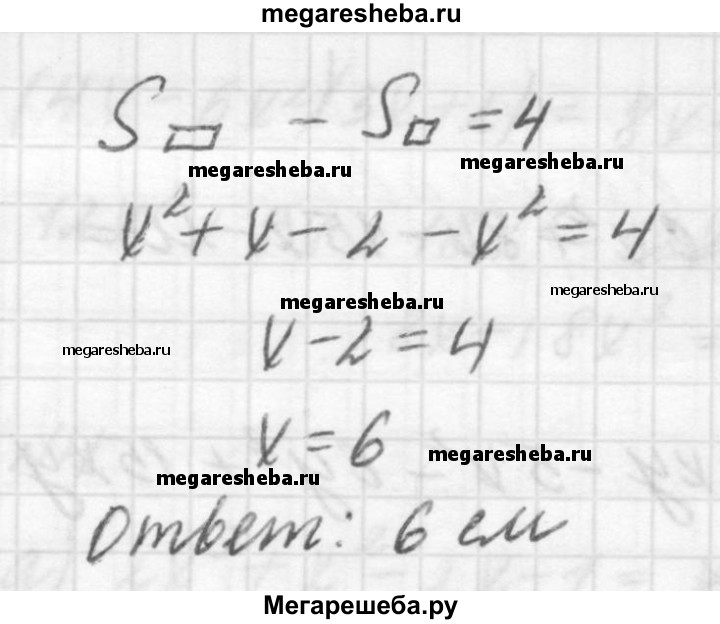 megaresheba.ru
S▭ - S□ = 4
megaresheba.ru
megaresheba.ru
x² + x - 2 - x² = 4
megaresheba.ru
megaresheba.ru
megaresheba.ru
x - 2 = 4
x = 6
megaresheba.ru
megaresheba.ru
Ответ: 6 см
Мегарешеба.ру